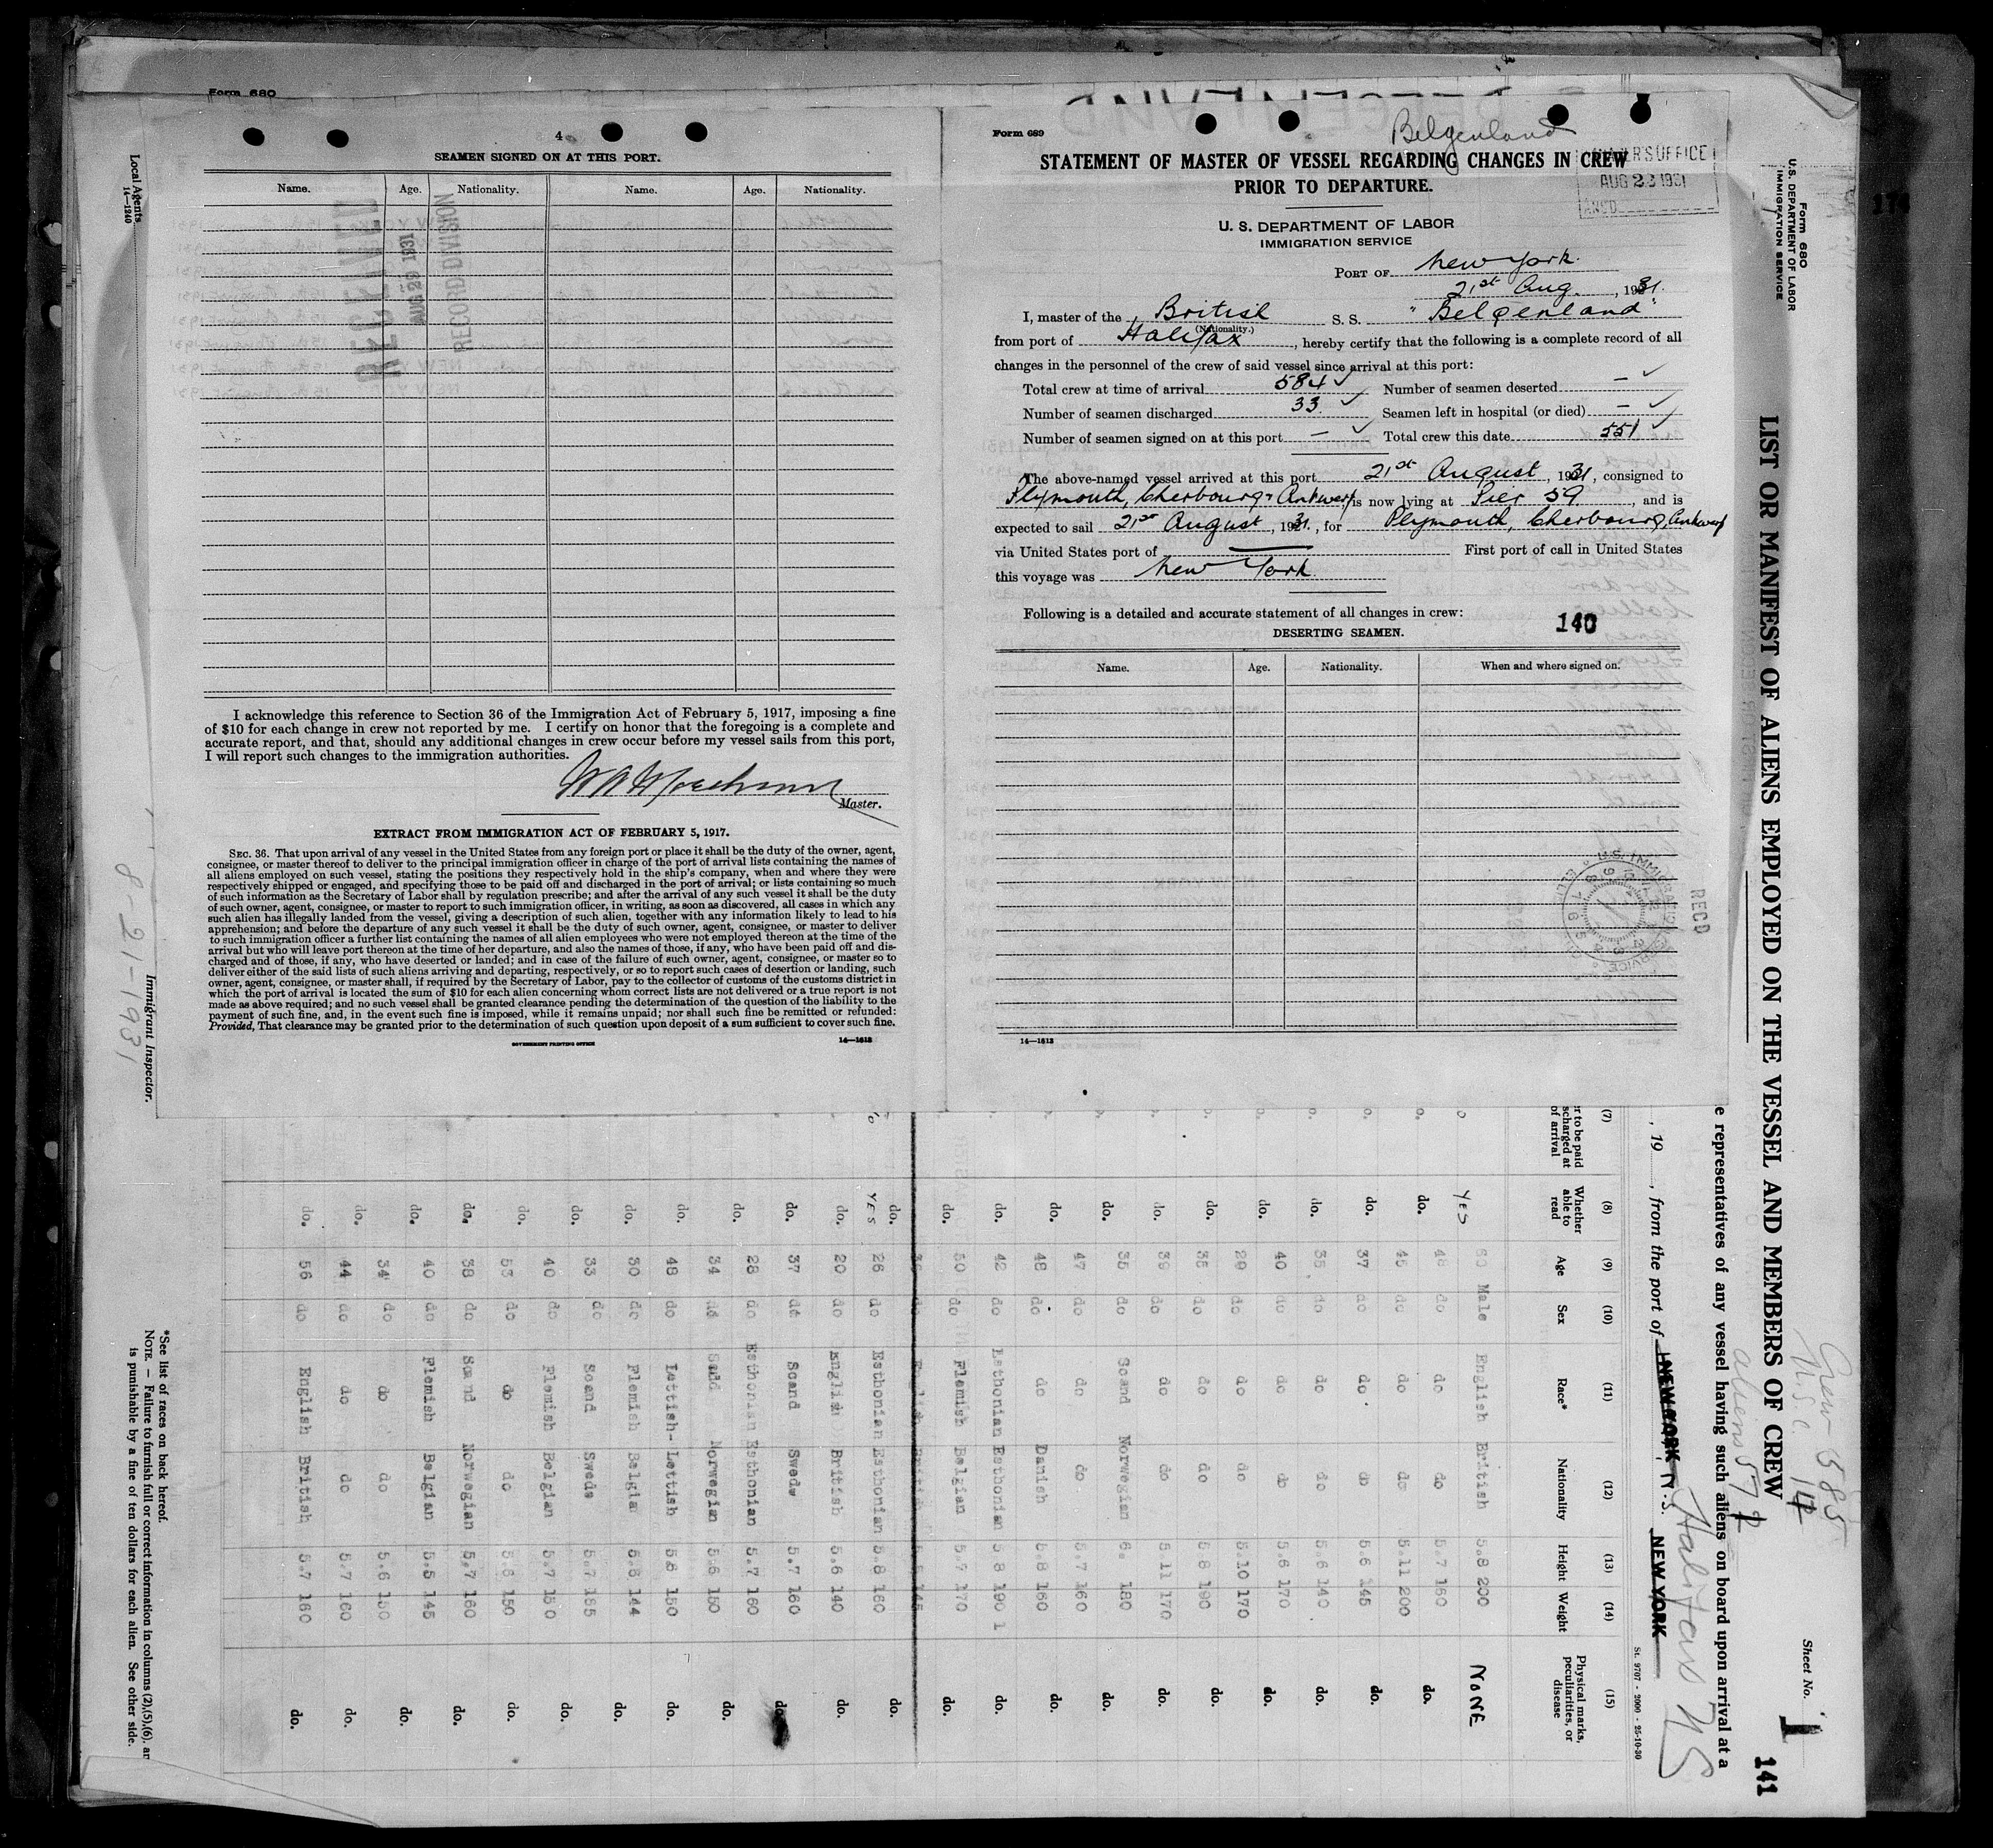 Form 680
4
SEAMEN SIGNED ON AT THIS PORT.
Name. Age. Nationality. Name. Age. Nationality.
RECEIVED
AUG 26 1931
RECORD DIVISION
I acknowledge this reference to Section 36 of the Immigration Act of February 5, 1917, imposing a fine
of $10 for each change in crew not reported by me. I certify on honor that the foregoing is a complete and
accurate report, and that, should any additional changes in crew occur before my vessel sails from this port,
I will report such changes to the immigration authorities.
Master.
EXTRACT FROM IMMIGRATION ACT OF FEBRUARY 5, 1917.
SEC. 36. That upon arrival of any vessel in the United States from any foreign port or place it shall be the duty of the owner, agent,
consignee, or master thereof to deliver to the principal immigration officer in charge of the port of arrival lists containing the names of
all aliens employed on such vessel, stating the positions they respectively hold in the ship's company, when and where they were
respectively shipped or engaged, and specifying those to be paid off and discharged in the port of arrival; or lists containing so much
of such information as the Secretary of Labor shall by regulation prescribe; and after the arrival of any such vessel it shall be the duty
of such owner, agent, consignee, or master to report to such immigration officer, in writing, as soon as discovered, all cases in which any
such alien has illegally landed from the vessel, giving a description of such alien, together with any information likely to lead to his
apprehension; and before the departure of any such vessel it shall be the duty of such owner, agent, consignee, or master to deliver
to such immigration officer a further list containing the names of all alien employees who were not employed thereon at the time of the
arrival but who will leave port thereon at the time of her departure, and also the names of those, if any, who have been paid off and dis-
charged and of those, if any, who have deserted or landed; and in case of the failure of such owner, agent, consignee, or master so to
deliver either of the said lists of such aliens arriving and departing, respectively, or so to report such cases of desertion or landing, such
owner, agent, consignee, or master shall, if required by the Secretary of Labor, pay to the collector of customs of the customs district in
which the port of arrival is located the sum of $10 for each alien concerning whom correct lists are not delivered or a true report is not
made as above required; and no such vessel shall be granted clearance pending the determination of the question of the liability to the
payment of such fine, and, in the event such fine is imposed, while it remains unpaid; nor shall such fine be remitted or refunded:
Provided, That clearance may be granted prior to the determination of such question upon deposit of a sum sufficient to cover such fine.
GOVERNMENT PRINTING OFFICE 14—1613
Form 689
Belgenland
STATEMENT OF MASTER OF VESSEL REGARDING CHANGES IN CREW
PRIOR TO DEPARTURE.
AUG 23 1931
U. S. DEPARTMENT OF LABOR
IMMIGRATION SERVICE
PORT OF New York.
21st Aug., 1931.
I, master of the British S. S. "Belgenland"
(Nationality.)
from port of Halifax, hereby certify that the following is a complete record of all
changes in the personnel of the crew of said vessel since arrival at this port:
Total crew at time of arrival 584 ✓ Number of seamen deserted — ✓
Number of seamen discharged 33. ✓ Seamen left in hospital (or died) — ✓
Number of seamen signed on at this port — ✓ Total crew this date 551 ✓
The above-named vessel arrived at this port 21st August, 1931, consigned to
Plymouth, Cherbourg + Antwerp, is now lying at Pier 59, and is
expected to sail 21st August, 1931, for Plymouth, Cherbourg, Antwerp
via United States port of — First port of call in United States
this voyage was New York.
Following is a detailed and accurate statement of all changes in crew:
140
DESERTING SEAMEN.
Name. Age. Nationality. When and where signed on.
14—1613
RECD
Local Agents
14—1240
8-21-1931
Immigrant Inspector.
Form 680
U.S. DEPARTMENT OF LABOR
IMMIGRATION SERVICE
Sheet No. 1
141
Crew 585
U.S.C. 14
aliens 57
LIST OR MANIFEST OF ALIENS EMPLOYED ON THE VESSEL AND MEMBERS OF CREW
e representatives of any vessel having such aliens on board upon arrival at a
, 19 , from the port of NEW YORK, N.S. NEW YORK
Halifax NS
St. 9707 - 2000 - 25-10-30
(7) (8) (9) (10) (11) (12) (13) (14) (15)
r to be paid
scharged at
of arrival
Whether
able to
read
Age Sex Race* Nationality Height Weight
Physical marks,
peculiarities, or
disease
YES 60 Male English British 5.8 200 NONE
do. 48 do do do 5.7 160 do.
45 do do do 5.11 200
37 do do do 5.6 145 do.
do. 35 do do do 5.6 140 do.
do. 40 do do do 5.6 170
29 do do do 5.10 170 do.
do. 35 do do do 5.8 190 do.
do. 39 do do do 5.11 170 do.
do. 35 do Scand Norwegian 6. 180 do.
47 do do do 5.7 160
do. 48 do do Danish 5.8 160 do.
do. 42 do Esthonian Esthonian 5.8 190 do.
do. 50 do Flemish Belgian 5.7 170 do.
do. 26 do Esthonian Esthonian 5.8 160 do.
YES
do. 20 do English British 5.6 140 do.
do. 37 do Scand Swede 5.7 160 do.
do. 28 do Esthonian Esthonian 5.7 160 do.
34 Norwegian 5.6 150
do. 48 do Lettish- Lettish 5.8 150 do.
do. 30 do Flemish Belgia 5.8 144 do.
do. 33 do Scand Swede 5.7 165
40 do Flemish Belgian 5.7 150 do.
do. 53 do do do 5.8 150 do.
do. 38 do Scand Norwegian 5.7 160 do.
do. 40 do Flemish Belgian 5.5 145 do.
34 do do do 5.6 150
do. 44 do do do 5.7 160 do.
do. 56 do English British 5.7 160 do.
*See list of races on back hereof.
NOTE. — Failure to furnish full or correct information in columns (2),(5),(6), ar
is punishable by a fine of ten dollars for each alien. See other side.